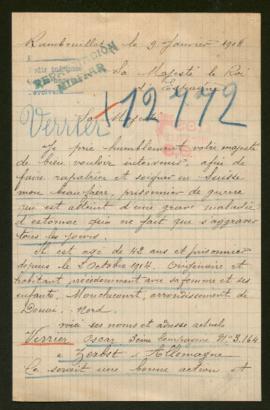 Rambouillet, le 9 Janvier 1916
REPATRIACIÓN
MILITAR
Sa Majesté le Roi
d'Espagne
12772
Verrier
Je prie humblement votre majesté
de bien vouloir intervenir, afin de
faire rapatrier et soigner en Suisse
mon beau frère, prisonnier de guerre
qui est atteint d'une grave maladie
d'estomac qui ne fait que s'aggraver
tous les jours.
Il est agé de 42 ans et prisonnier
depuis le 2 Octobre 1914. Originaire et
habitant précédemment avec sa femme et ses
enfants, arrondissement de
Douai. Nord.
voici ses noms et adresse actuels
Verrier Oscar 3eme Compagnie No 3.164
Zerbst Allemagne
Ce serait une bonne action et